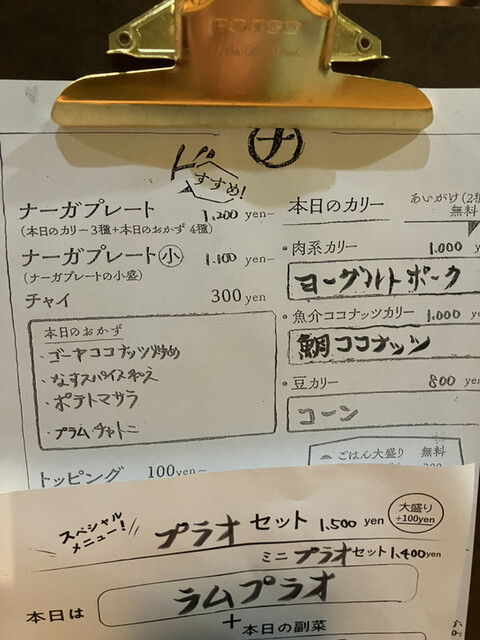 penco
ナ
ド すすめ!
ナーガプレート 1,200 yen~
(本日のカリー3種+本日のおかず 4種)
ナーガプレート小 1,100 yen~
(ナーガプレートの小盛)
チャイ 300 yen
本日のおかず
・ゴーヤココナッツ炒め
・なすスパイス和え
・ポテトマサラ
・プラムチャトニ
トッピング 100yen~
本日のカリー
あいがけ (2種
無料
・肉系カリー 1,000 y
ヨーグルトポーク
・魚介ココナッツカリー 1,000 y
鯛ココナッツ
・豆カリー 800 yen
コーン
ごはん大盛り 無料
スペシャルメニュー! プラオセット 1,500 yen
大盛り
+100yen
ミニプラオセット 1,400yen
本日は ラムプラオ
+ 本日の副菜